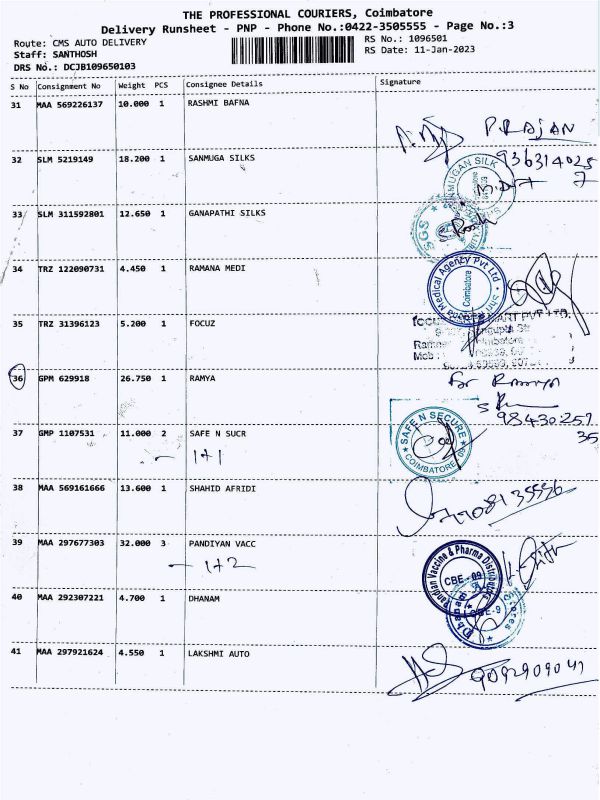 THE PROFESSIONAL COURIERS, Coimbatore
Delivery Runsheet - PNP - Phone No.:0422-3505555 - Page No.:3
Route: CMS AUTO DELIVERY RS No.: 1096501
Staff: SANTHOSH RS Date: 11-Jan-2023
DRS No.: DCJB109650103
S No Consignment No Weight PCS Consignee Details Signature
31 MAA 569226137 10.000 1 RASHMI BAFNA
P.RAJAN
32 SLM 5219149 18.200 1 SANMUGA SILKS
33 SLM 311592801 12.650 1 GANAPATHI SILKS
SGS
34 TRZ 122090731 4.450 1 RAMANA MEDI
Medical Agency Pvt Ltd
Coimbatore
35 TRZ 31396123 5.200 1 FOCUZ
36 GPM 629918 26.750 1 RAMYA
For Ramya
98430257
35
37 GMP 1107531 11.000 2 SAFE N SUCR
- 1+1
SAFE N SECURE
COIMBATORE
38 MAA 569161666 13.600 1 SHAHID AFRIDI
39 MAA 297677303 32.000 3 PANDIYAN VACC
- 1+2
Pandian Vaccine & Pharma Distributors
CBE-09
40 MAA 292307221 4.700 1 DHANAM
41 MAA 297921624 4.550 1 LAKSHMI AUTO
9092909041